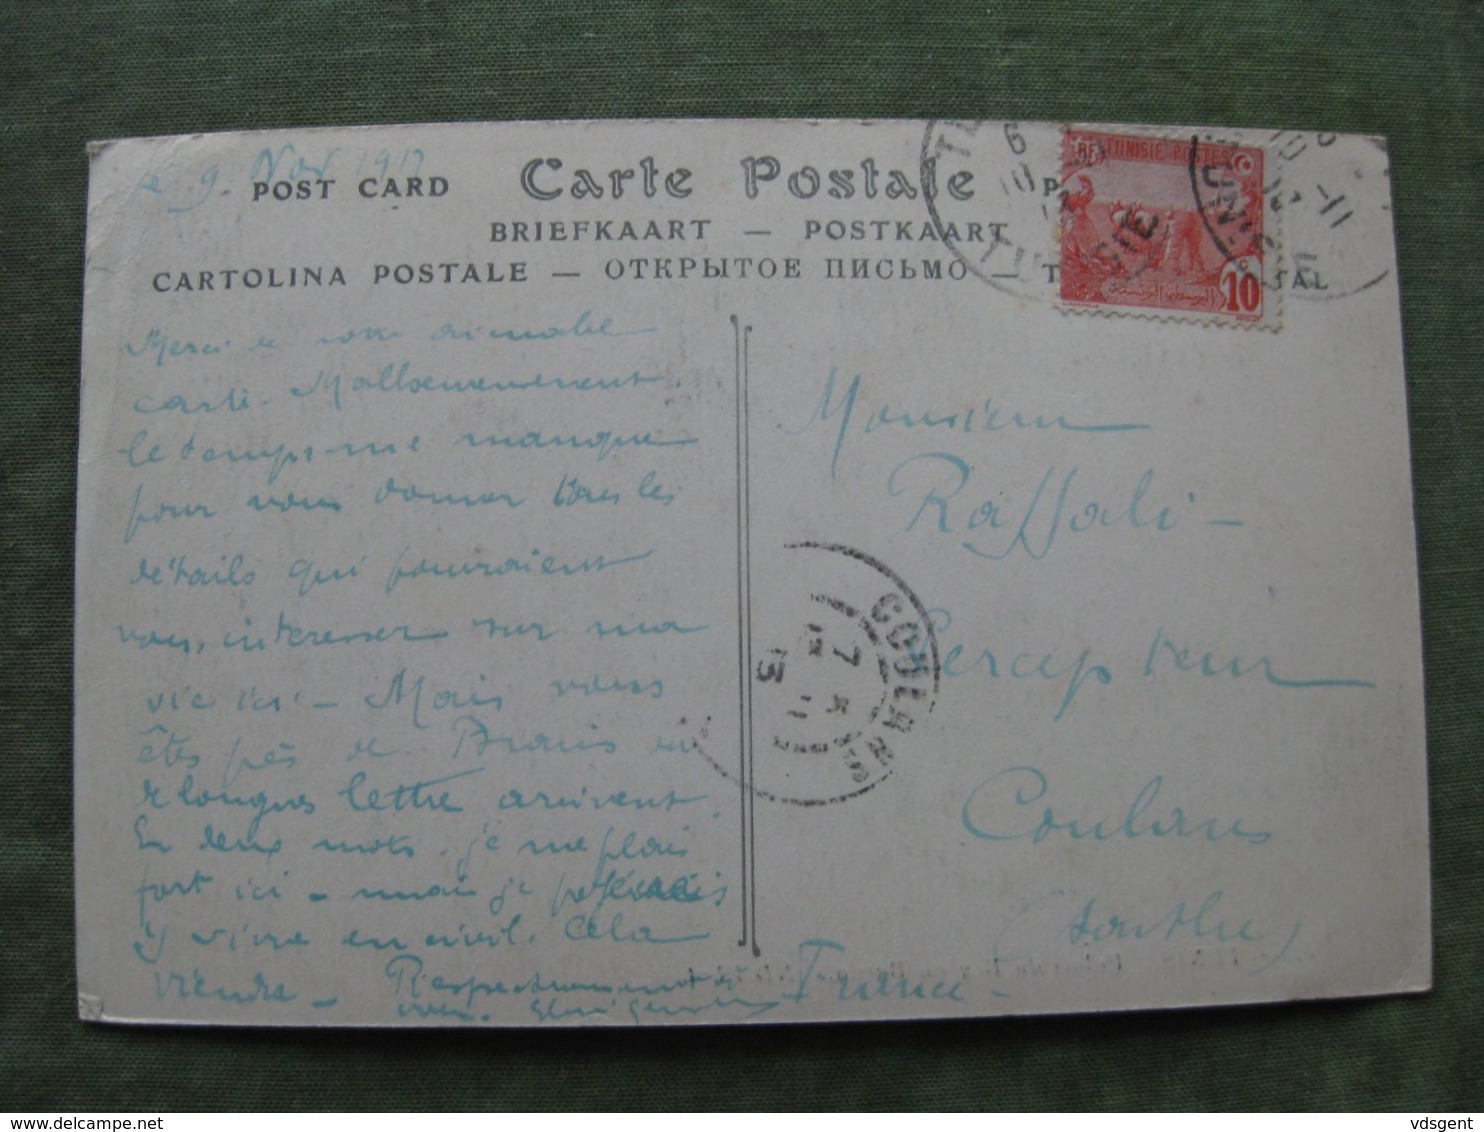 9 Nov 191
POST CARD Carte Postale
BRIEFKAART — POSTKAART
CARTOLINA POSTALE — ОТКРЫТОЕ ПИСЬМО — TAL
RF TUNISIE POSTES
10
TUNISIE
Merci de votre aimable
carte. Malheureusement
le temps me manque
pour vous donner tous les
détails qui pourraient
vous intéresser sur ma
vie ici - Mais vous
êtes près de ou
de longues lettre arrivent.
En deux mots, je me plais
fort ici - mais je préférerais
y vivre en civil. Cela
viendra - Respectueusement à
vous.
Monsieur
Raffali -
Percepteur
Coulans
(Sarthe)
France -
COULANS
7
11
13
delcampe.net
vdsgent